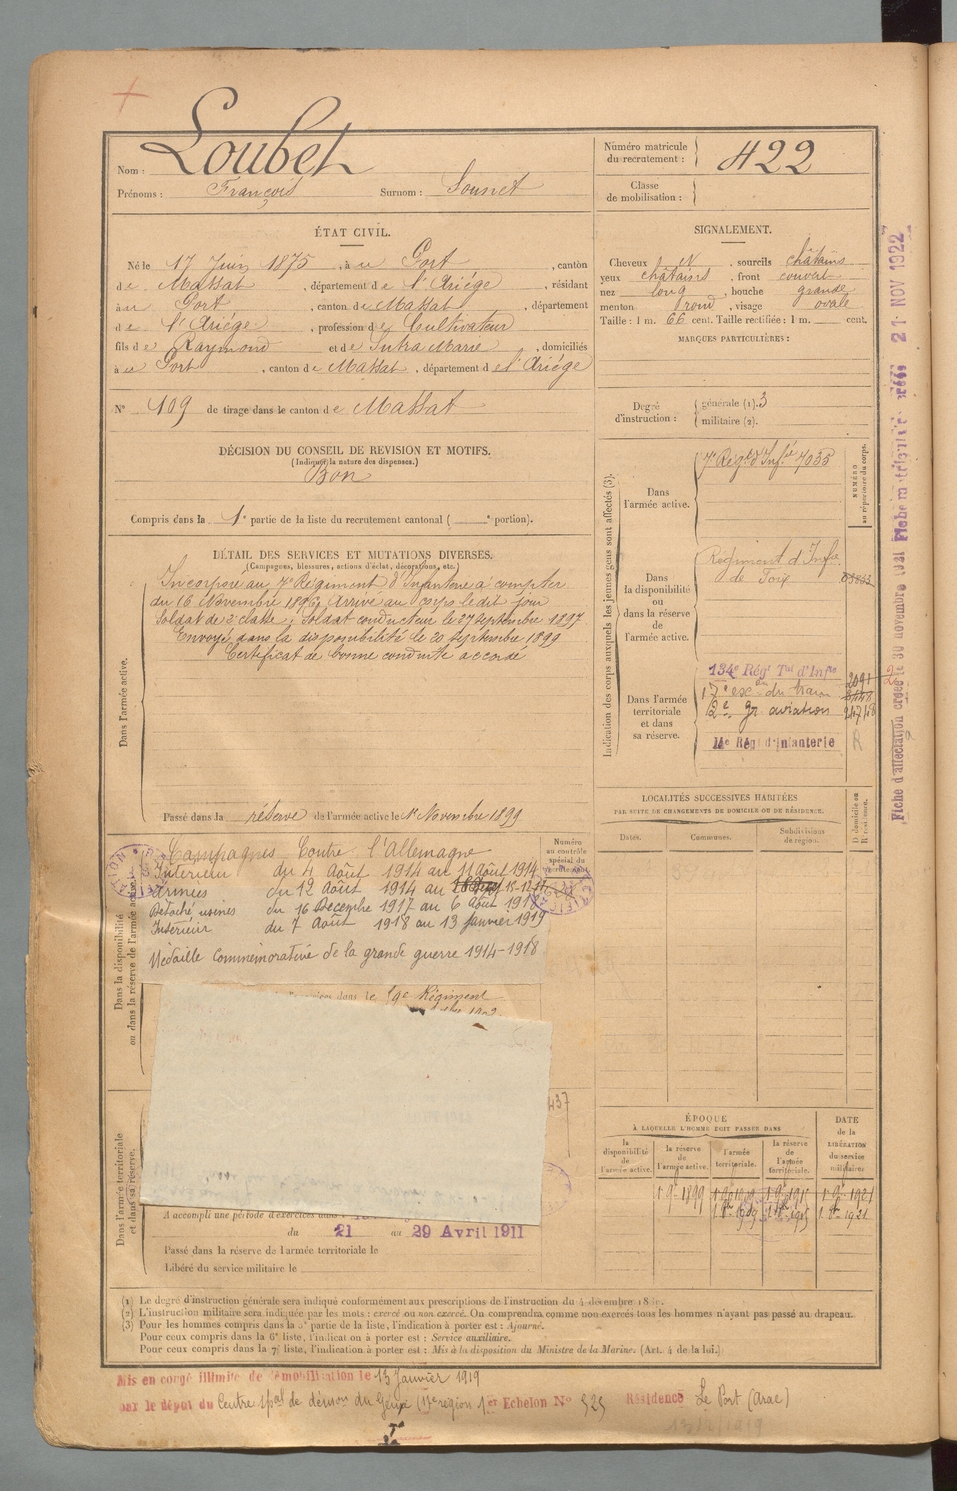 Nom : Loubet
Prénoms : François Surnom : Sounet
Numéro matricule du recrutement : 422
Classe de mobilisation :
ÉTAT CIVIL.
Né le 17 Juin 1875, à u Port, canton
de Massat, département de l'Ariége, résidant
à u Port, canton de Massat, département
de l'Ariége, profession de Cultivateur
fils de Raymond et de Sutra Marie, domiciliés
à u Port, canton de Massat, département de l'Ariége
N° 109 de tirage dans le canton de Massat
SIGNALEMENT.
Cheveux et N, sourcils châtains
yeux châtains, front couvert
nez long, bouche grande
menton rond, visage ovale
Taille : 1 m. 66 cent. Taille rectifiée : 1 m. cent.
MARQUES PARTICULIÈRES :
Degré d'instruction : générale (1). 3
militaire (2).
DÉCISION DU CONSEIL DE REVISION ET MOTIFS.
(Indiquer la nature des dispenses.)
Bon
Compris dans la 1e partie de la liste du recrutement cantonal ( e portion).
DÉTAIL DES SERVICES ET MUTATIONS DIVERSES.
(Campagnes, blessures, actions d'éclat, décorations, etc.)
Dans l'armée active.
Incorporé au 7e Régiment d'Infanterie à compter
du 16 Novembre 1896, Arrivé au corps le dit jour
Soldat de 2e classe ; Soldat conducteur le 27 Septembre 1897
Envoyé dans la disponibilité le 20 Septembre 1899
Certificat de bonne conduite accordé
Passé dans la réserve de l'armée active le 1er Novembre 1899
Indication des corps auxquels les jeunes gens sont affectés (3).
NUMÉRO au répertoire du corps.
Dans l'armée active.
7e Régt d'Infie 7035
Dans la disponibilité ou dans la réserve de l'armée active.
Régiment d'Infie
de Foix
Dans l'armée territoriale et dans sa réserve.
134e Régt Tal d'Infie 2091
17e esc du train
2e gr aviation
14e Régt d'Infanterie R
LOCALITÉS SUCCESSIVES HABITÉES
PAR SUITE DE CHANGEMENTS DE DOMICILE OU DE RÉSIDENCE.
Dates. Communes. Subdivisions de région. D domicile ou R résidence.
Dans la disponibilité
ou dans la réserve de l'armée active.
Numéro au contrôle spécial du recrutement.
Campagnes Contre l'Allemagne
Intérieur du 4 Août 1914 au 11 Août 1914
Armées du 12 Août 1914 au 15-12-17
Détaché usines du 16 Décembre 1917 au 6 Août 1918
Intérieur du 7 Août 1918 au 13 Janvier 1919
Médaille Commémorative de la grande guerre 1914-1918
dans le 59e Régiment
437
Dans l'armée territoriale
et dans sa réserve.
A accompli une période d'exercices dans
du 21 au 29 Avril 1911
Passé dans la réserve de l'armée territoriale le
Libéré du service militaire le
ÉPOQUE
À LAQUELLE L'HOMME DOIT PASSER DANS
la disponibilité de l'armée active. la réserve de l'armée active. l'armée territoriale. la réserve de l'armée territoriale.
DATE de la LIBÉRATION du service militaire
1 9e 1899 1 9e 1909 1 9e 1915 1 9e 1921
1 8bre 1909 1 8bre 1915 1 8bre 1921
(1) Le degré d'instruction générale sera indiqué conformément aux prescriptions de l'instruction du 4 décembre
(2) L'instruction militaire sera indiquée par les mots : exercé ou non exercé. On comprendra comme non exercés tous les hommes n'ayant pas passé au drapeau.
(3) Pour les hommes compris dans la 5e partie de la liste, l'indication à porter est : Ajourné.
Pour ceux compris dans la 6e liste, l'indication à porter est : Service auxiliaire.
Pour ceux compris dans la 7e liste, l'indication à porter est : Mis à la disposition du Ministre de la Marine. (Art. 4 de la loi.)
Mis en congé illimité de démobilisation le 13 Janvier 1919
par le dépôt du Centre spal de démon du Génie (17e région 1er Echelon N° 525 Résidence Le Port (Arac)
Fiche d'affectation créée le 30 novembre 1921 Fiche matricule créée 21 NOV 1922